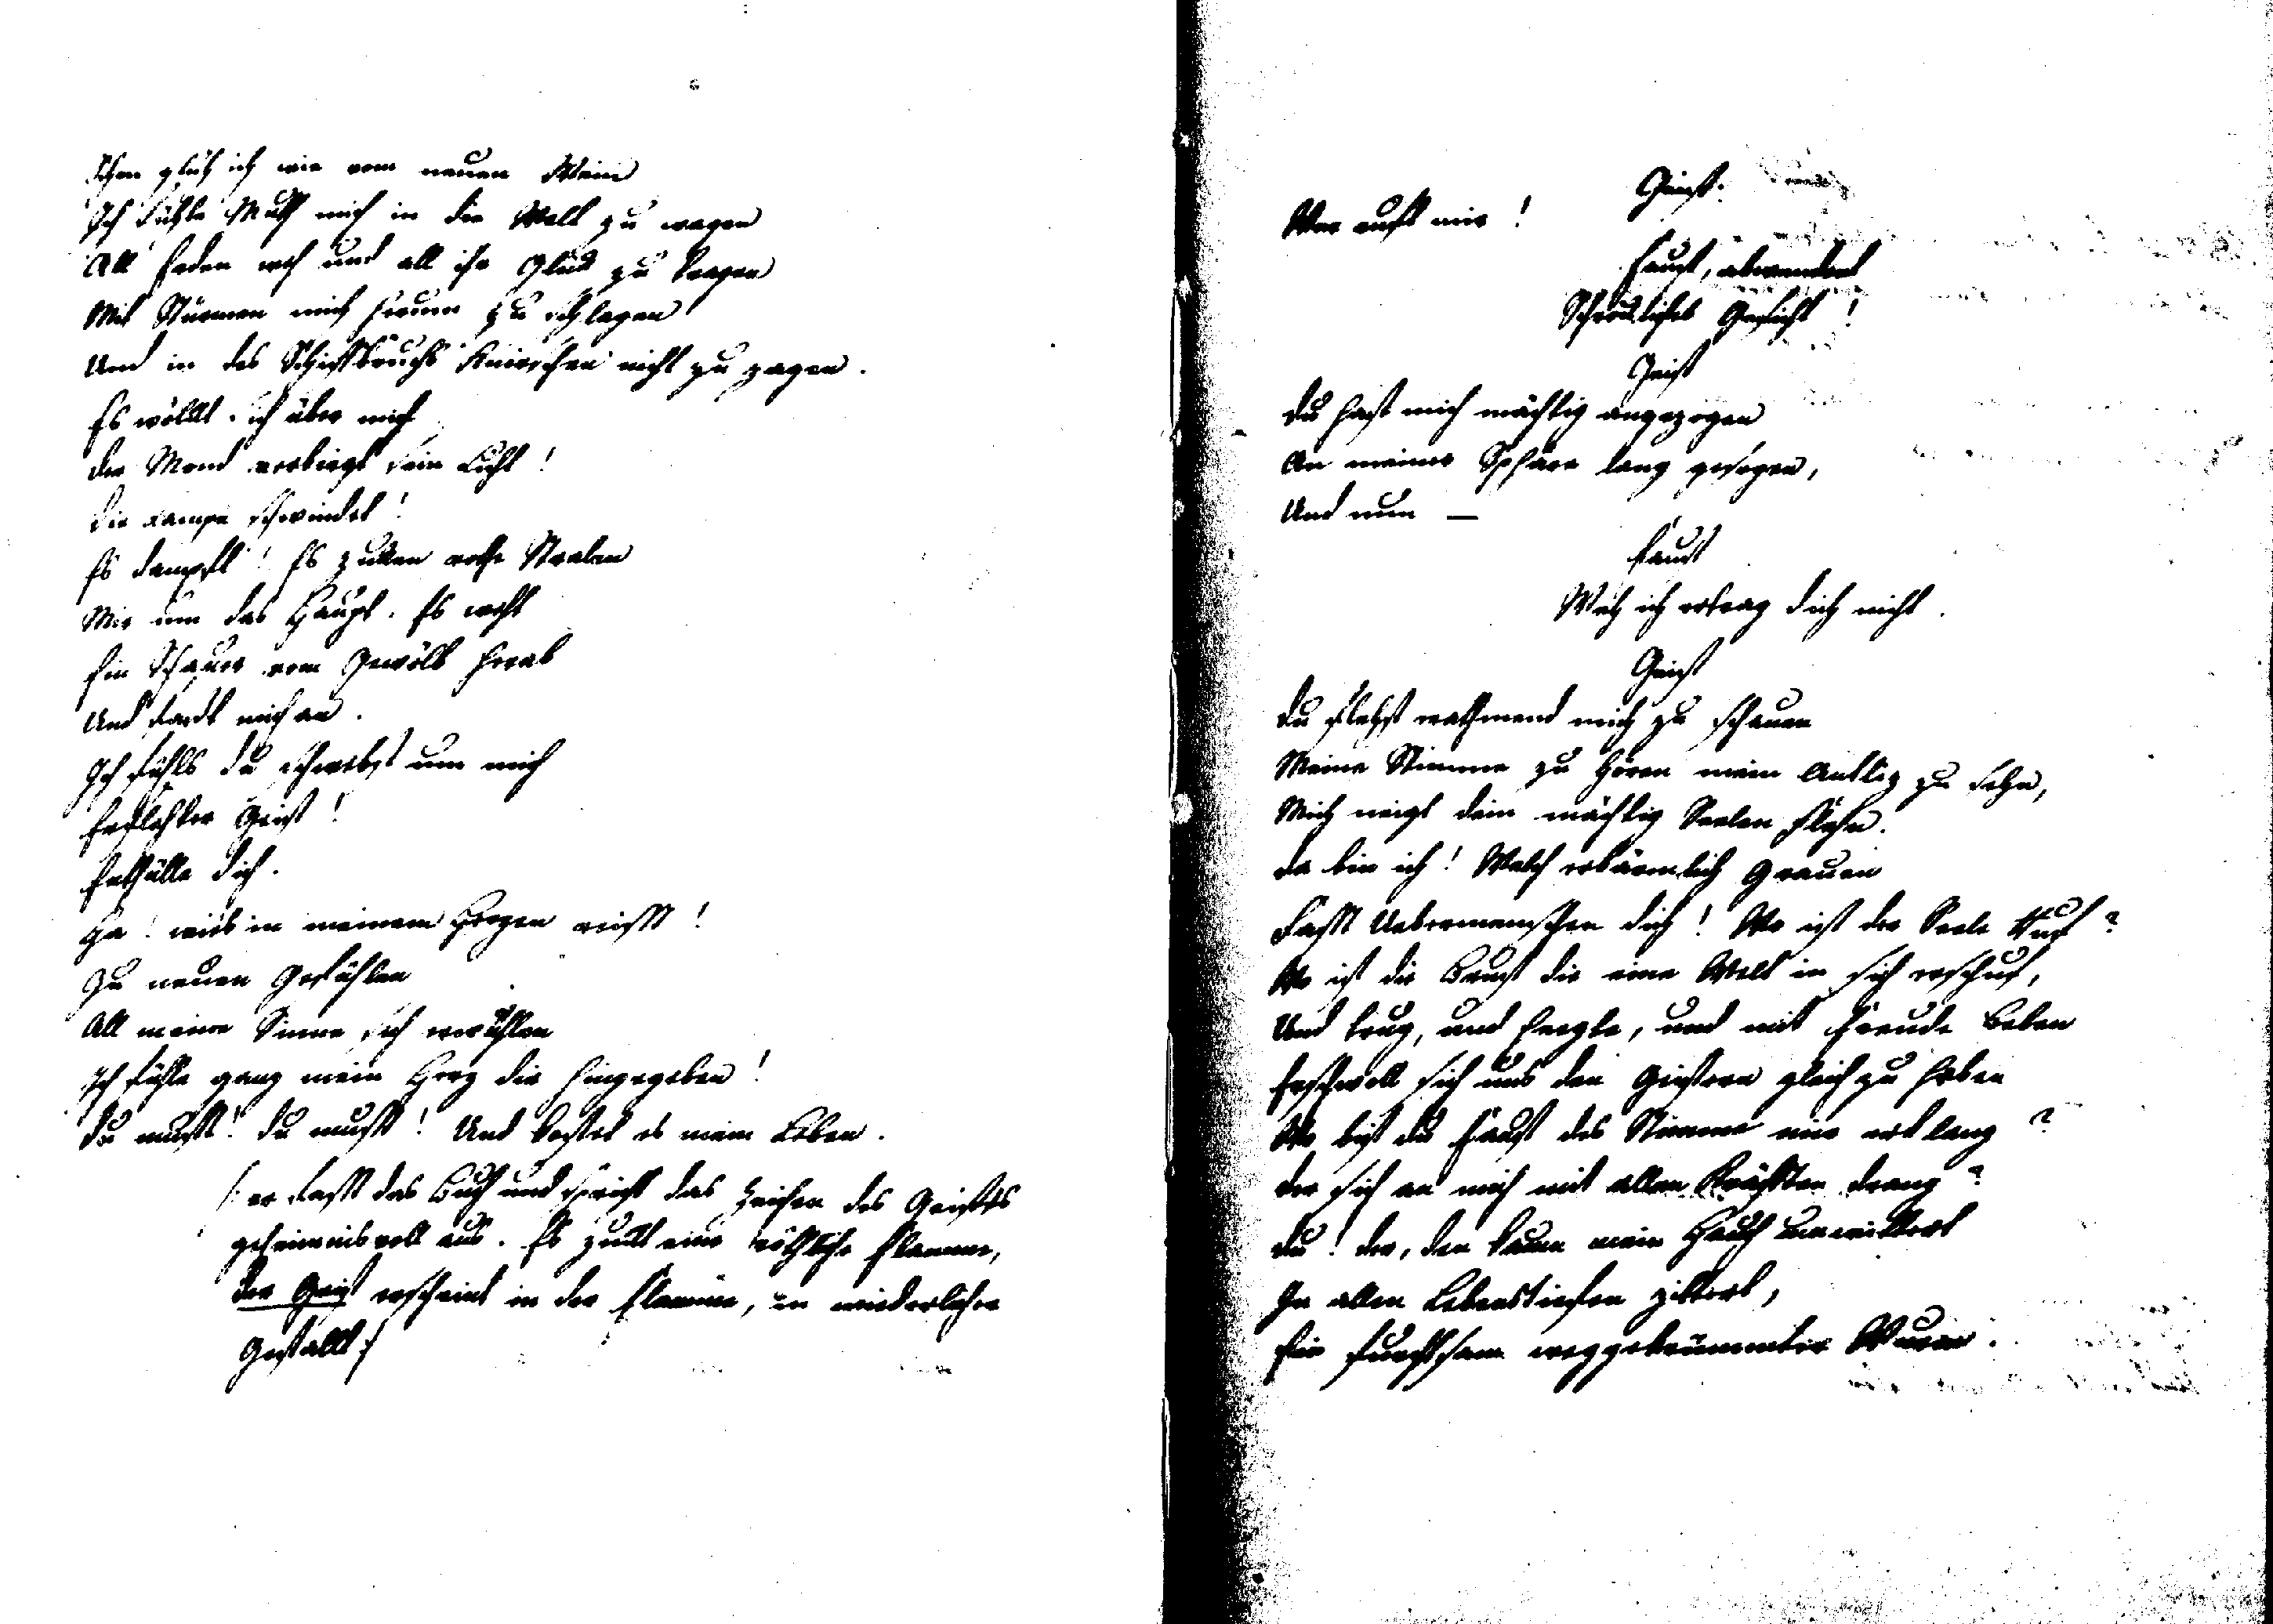 Schon glüh ich wie vom neuen Wein
Ich fühle Muth mich in die Welt zu wagen
All Erden weh und all ihr Glück zu tragen
Mit Stürmen mich herum zu schlagen
Und in des Schiffbruchs Knirschen nicht zu zagen.
Es wölkt sich über mich
Der Mond verbirgt sein Licht!
Die Lampe schwindet!
Es dampft! Es zucken rothe Stralen
Mir um das Haupt. Es weht
Ein Schauer vom Gewölb herab
Und fasst mich an.
Ich fühls du schwebst um mich
Erflehter Geist!
Enthülle dich.
Ha! wies in meinem Herzen reisst!
Zu neuen Gefühlen
All meine Sinne sich erwühlen
Ich fühle ganz mein Herz dir hingegeben!
Du musst! du musst! Und kostet es mein Leben.
/: er fasst das Buch und spricht das Zeichen des Geistes
geheimnisvoll aus. Es zuckt eine röthliche Flamme,
der Geist erscheint in der Flamme, in wiederlicher
Gestallt :/
Geist.
Wer ruft mir!
Faust, abwendend
Schröckliches Gesicht!
Geist
Du hast mich mächtig angezogen
An meiner Sphäre lang gesogen,
Und nun —
Faust
Weh ich ertrag dich nicht.
Geist
Du flehst erathmend mich zu schauen
Meine Stimme zu hören mein Antliz zu sehn,
Mich neigt dein mächtig Seelen Flehn.
Da bin ich! Welch erbärmlich Grauen
Fasst Uebermenschen dich! Wo ist der Seele Ruf?
Wo ist die Brust die eine Welt in sich erschuf,
Und trug, und heegte, und mit Freude Beben
Erschwoll sich uns den Geistern gleich zu heben
Wo bist du Faust des Stimme mir erklang?
Der sich an mich mit allen Kräfften drang?
Du! der, den kaum mein Hauch umwittert
In allen Lebenstiefen zittert,
Ein furchtsam weggekrümmter Wurm.